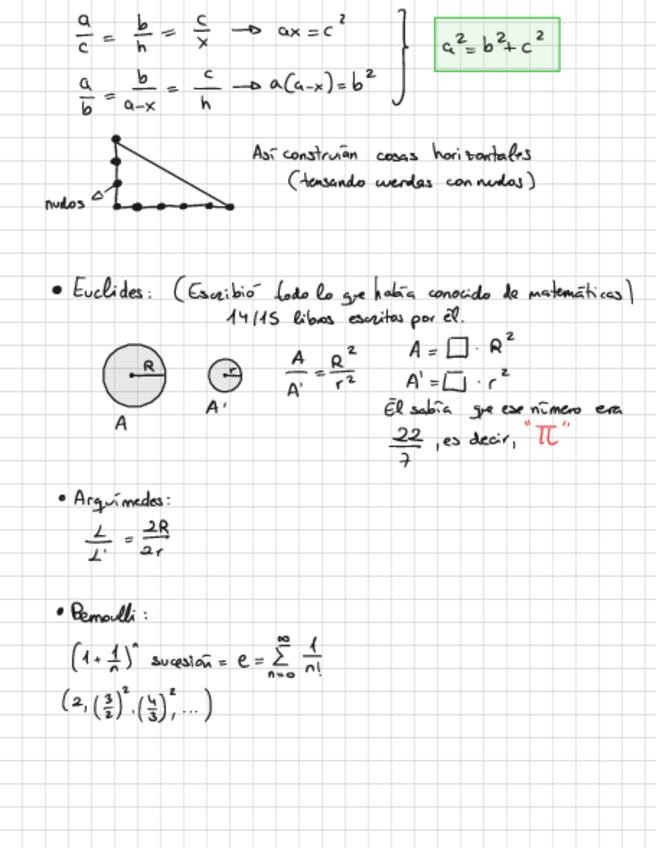 a/c = b/h = c/x → ax = c²
a/b = b/(a-x) = c/h → a(a-x) = b²
a² = b² + c²
Así construían cosas horizontales
(tensando cuerdas con nudos)
nudos
• Euclides: (Escribió todo lo que había conocido de matemáticas)
14/15 libros escritos por él.
R
r
A
A'
A/A' = R²/r²
A = □ · R²
A' = □ · r²
Él sabía que ese número era
22/7, es decir, "π"
• Arquímedes:
L/L' = 2R/2r
• Bernoulli:
(1 + 1/n)ⁿ sucesión = e = ∑_{n=0}^{∞} 1/n!
(2, (3/2)², (4/3)², ...)